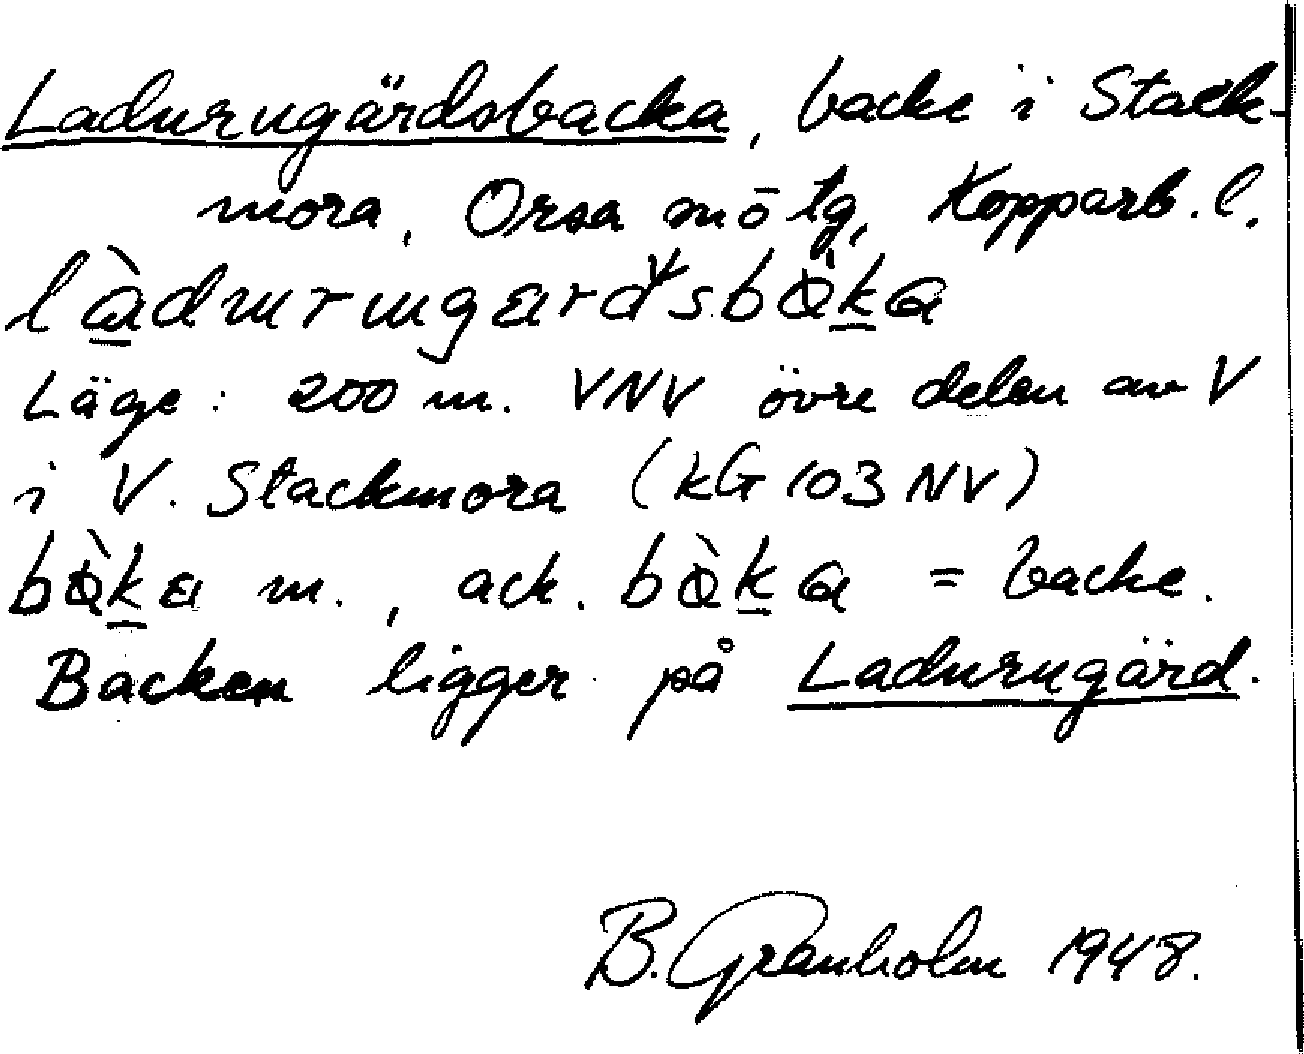 Ladurugärdsbacka, backe i Stack-
mora, Orsa sn ö tg, Kopparb. l.
Läge: 200 m. VNV övre delen av V
i V. Stackmora (kG 103 NV)
m., ack. = backe.
Backen ligger på Ladurugärd.
B. Granholm 1948.